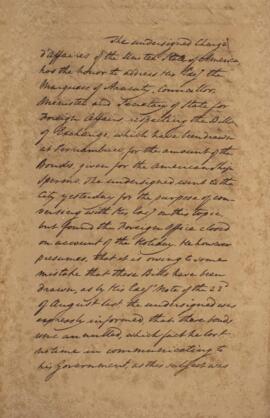 The undersigned Chargé
d'affaires of the United States of America
has the honor to address His Excy the
Marquess of Aracaty, Councillor,
Minister and Secretary of State for
Foreign Affairs respecting the Bills
of Exchange, which have been drawn
at Pernambuco for the amount of the
Bonds, given for the American ship
Spermo. The undersigned went to the
City yesterday for the purpose of con-
versing with His Excy on this topic,
but found the Foreign Office closed
on account of the Holiday. He however
presumes, that it is owing to some
mistake that these Bills have been
drawn, as by His Excy Note of the 23d
of August last the undersigned was
expressly informed, that these bonds
were annulled, which fact he lost
no time in communicating to
his Government, as this subject was